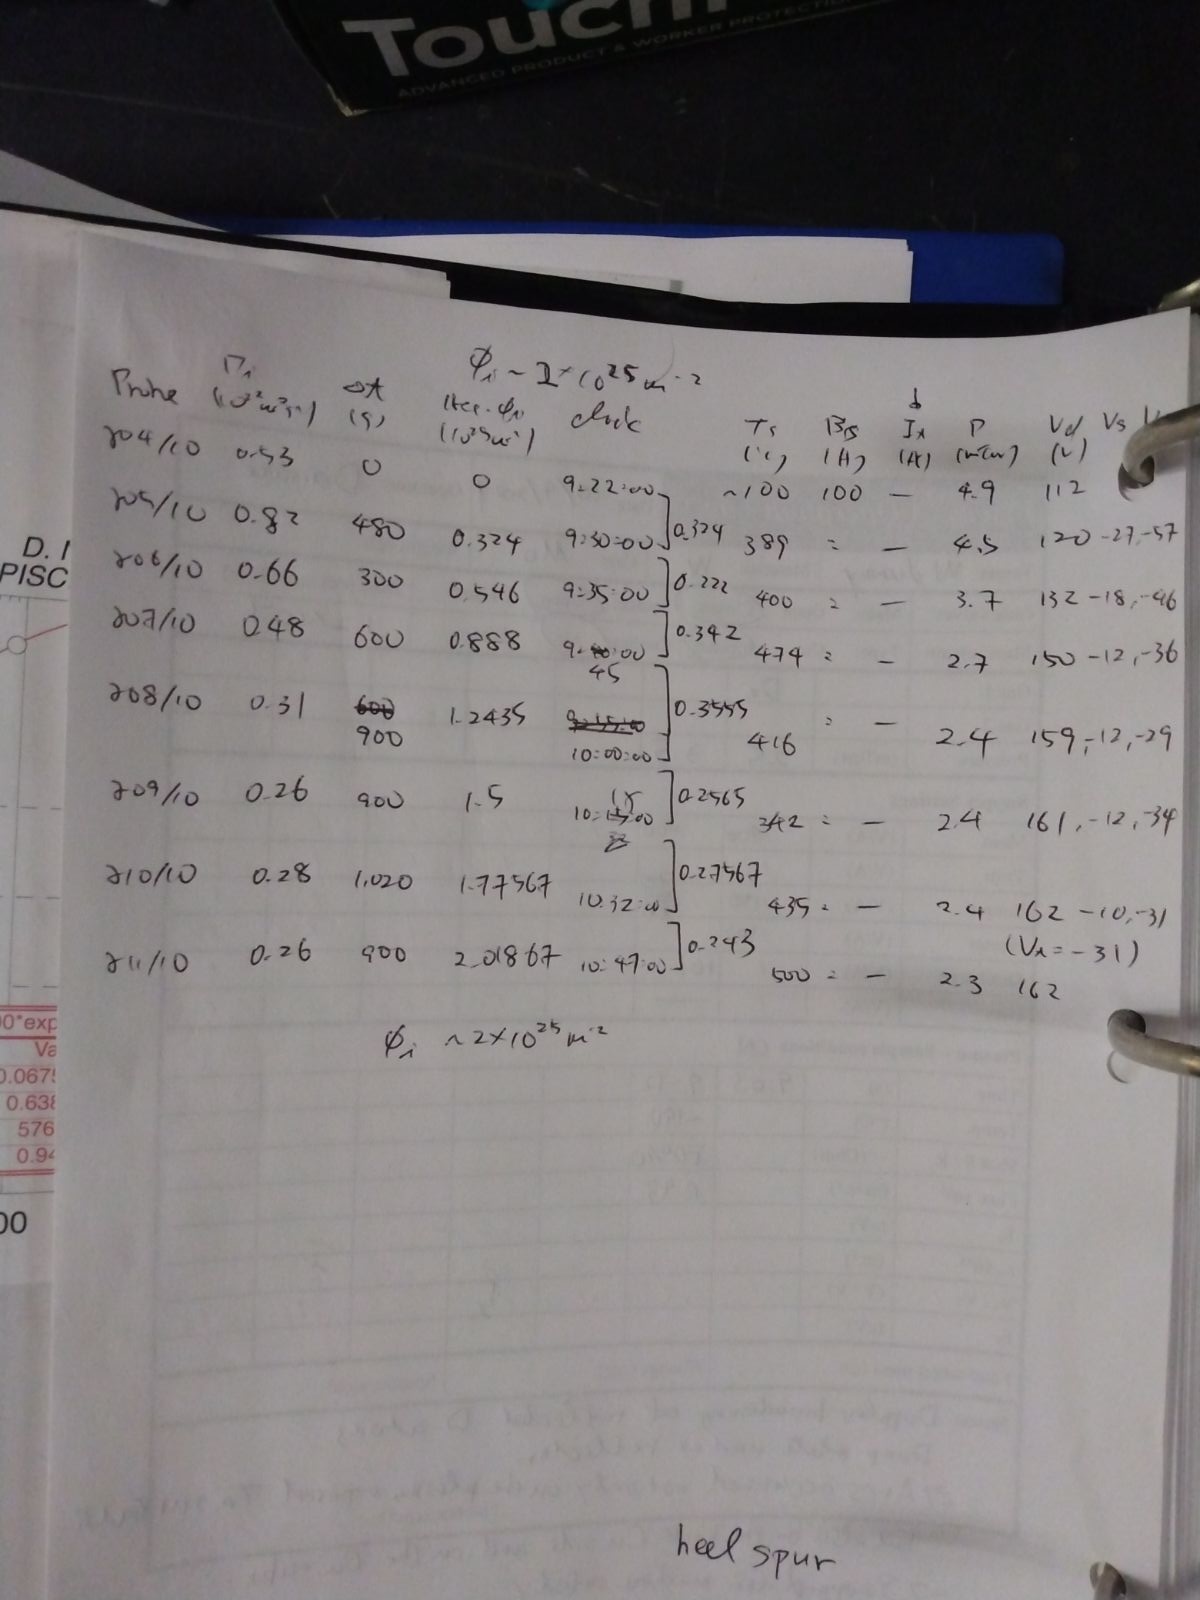 Touchn
ADVANCED PRODUCT & WORKER PROTECTION
Φi ~ 2×10^25 m^-2
Probe Γi Δt clock Ts BB Ix P Vd Vs
(s) (°C) (A) (A) (mTorr) (V)
204/10 0.53 0 0 9:22:00 ~100 100 — 4.9 112
205/10 0.82 480 0.324 9:30:00 ]0.324 389 : — 4.5 120 -27,-57
206/10 0.66 300 0.546 9:35:00 ]0.222 400 : — 3.7 132 -18,-46
207/10 0.48 600 0.888 9:45:00 ]0.342 474 : — 2.7 150 -12,-36
208/10 0.31 600 900 1.2435 10:00:00 ]0.3555 416 : — 2.4 159,-12,-29
209/10 0.26 900 1.5 10:15:00 ]0.2565 342 : — 2.4 161,-12,-34
210/10 0.28 1,020 1.77567 10:32:00 ]0.27567 435 : — 2.4 162 -10,-31
211/10 0.26 900 2.01867 10:47:00 ]0.243 500 : — 2.3 162
(Vs=-31)
Φi ~2×10^25 m^-2
D. I
PISC
0*exp
Va
0.0675
0.638
576
0.94
00
heel spur